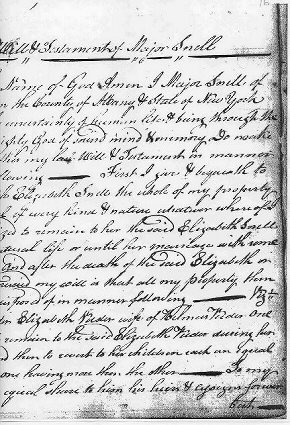 Will & Testament of Major Snell
Name of God Amen I Major Snell of
n the County of Albany & State of New York
uncertainty of human life & being through the
ghty God of sound mind & memory Do make
this my last Will & Testament in manner
llowing — First I give & bequeath to
e Elizabeth Snell the whole of my property
l of every kind & nature whatever whereof I
ed to remain to her the said Elizabeth Snell
atural life or until her marriage with some
And after the death of the said Elizabeth or
my will is that all my property then
isposed of in manner following — Viz
Elizabeth Rider wife of Rider One
remain to the said Elizabeth Rider during her
d then to revert to his children each an Equal
one having more than the other — To my
equal share to him his heirs & assigns forever